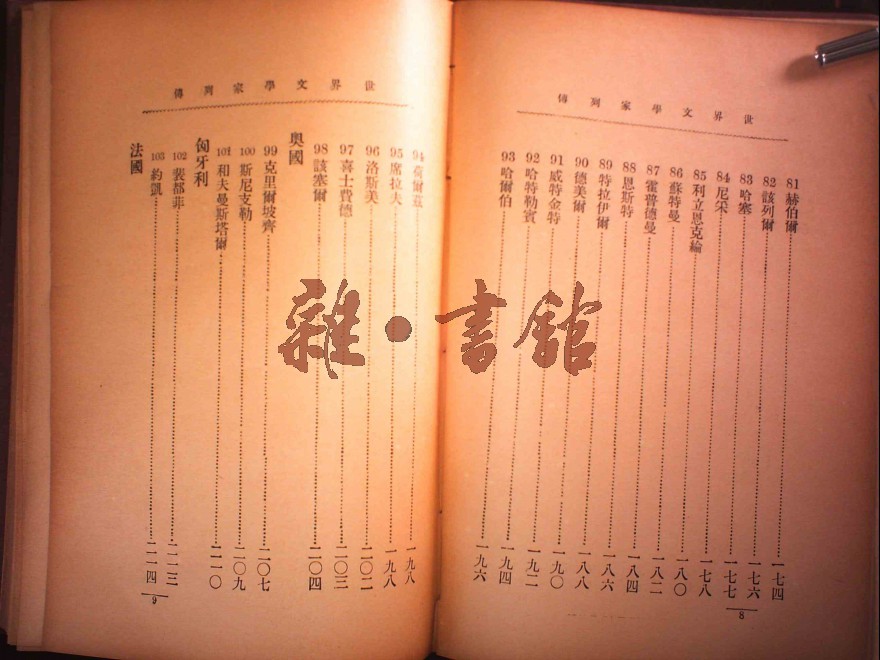 世界文學家列傳
81 赫伯爾 一七四
82 該列爾 一七六
83 哈塞 一七七
84 尼采 一七八
85 利立恩克綸
86 蘇特曼 一八〇
87 霍普德曼 一八二
88 恩斯特 一八四
89 特拉伊爾 一八六
90 德美爾 一八八
91 威特金特 一九〇
92 哈特勒賓 一九二
93 哈爾伯 一九四
一九六
8
世界文學家列傳
94 荷爾茲 一九八
95 席拉夫 一九八
96 洛斯美 二〇二
97 喜士費德 二〇三
98 該塞爾 二〇四
奧國
99 克里爾坡齊 二〇七
100 斯尼支勒 二〇九
101 和夫曼斯塔爾 二一〇
匈牙利
102 裴都菲 二一三
103 約凱 二一四
法國
9
雜·書館